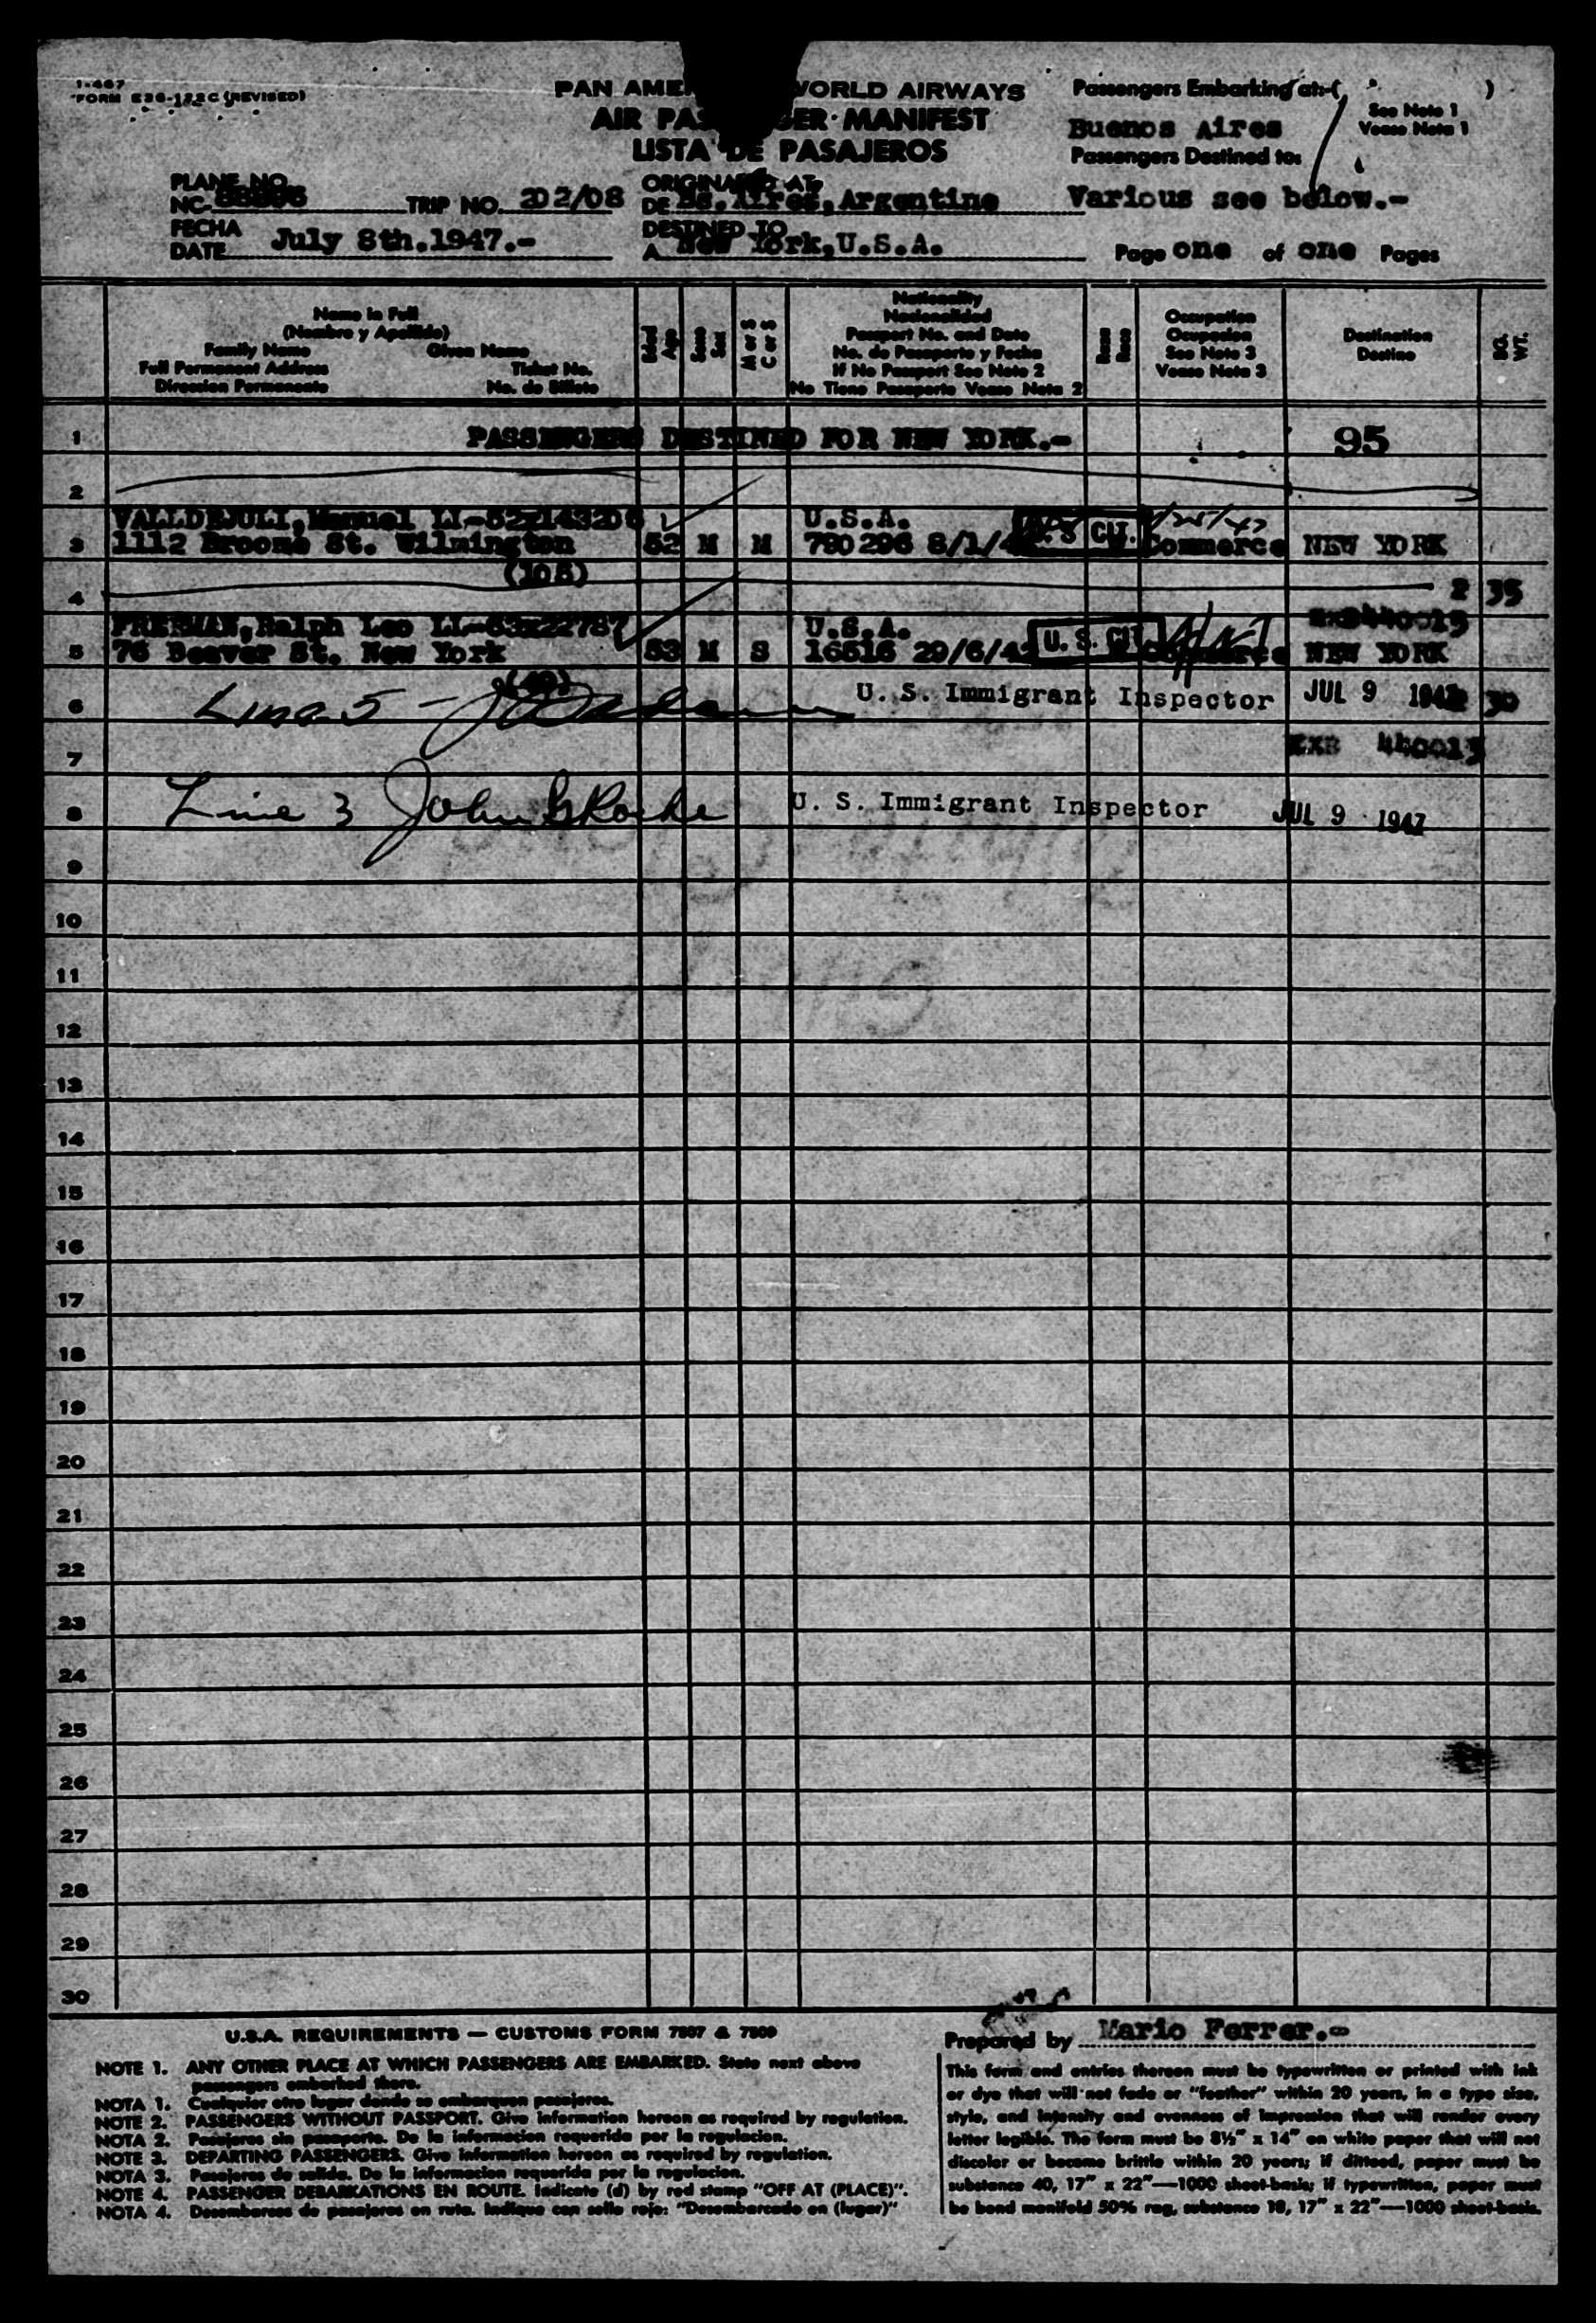 1-467
FORM E26-122C (REVISED)
PAN AMER WORLD AIRWAYS
AIR PAS GER MANIFEST
LISTA DE PASAJEROS
Passengers Embarking at:-( )
See Note 1
Vease Nota 1
Buenos Aires
Passengers Destined to:
Various see below.-
PLANE NO.
NC- TRIP NO. 202/08
ORIGINATED AT
DE Bs.Aires,Argentine
FECHA
DATE July 8th.1947.-
DESTINED TO
A New York,U.S.A.
Page one of one Pages
Name in Full
(Nombre y Apellido)
Family Name Given Name
Full Permanent Address Ticket No.
Direccion Permanente No. de Billete
Edad
Age
Sexo
Sex
M or S
C or S
Nationality
Nacionalidad
Passport No. and Date
No. de Pasaporte y Fecha
If No Passport See Note 2
No Tiene Pasaporte Vease Nota 2
Occupation
Ocupacion
See Note 3
Vease Nota 3
Destination
Destino
WT.
1 PASSENGERS DESTINED FOR NEW YORK.- 95
2
VALLDEJULI, Manuel U.S.A.
3 1112 Broome St. Wilmington 52 M M 790296 8/1/4 U.S CIT. Commerce NEW YORK
(105)
4 2 35
FREEMAN, Ralph Leo U.S.A.
5 76 Beaver St. New York 53 M S 16516 29/6/4 U. S. CIT NEW YORK
6 Line 5 U. S. Immigrant Inspector JUL 9 1947 30
7 EXB 440013
8 Line 3 John B Roche U. S. Immigrant Inspector JUL 9 1947
9
10
11
12
13
14
15
16
17
18
19
20
21
22
23
24
25
26
27
28
29
30
U.S.A. REQUIREMENTS — CUSTOMS FORM 7507 & 7509
NOTE 1. ANY OTHER PLACE AT WHICH PASSENGERS ARE EMBARKED. State next above
passengers embarked there.
NOTA 1. Cualquier otro lugar donde se embarquen pasajeros.
NOTE 2. PASSENGERS WITHOUT PASSPORT. Give information hereon as required by regulation.
NOTA 2. Pasajeros sin pasaporte. De la informacion requerida por la regulacion.
NOTE 3. DEPARTING PASSENGERS. Give information hereon as required by regulation.
NOTA 3. Pasajeros de salida. De la informacion requerida por la regulacion.
NOTE 4. PASSENGER DEBARKATIONS EN ROUTE. Indicate (d) by red stamp "OFF AT (PLACE)".
NOTA 4. Desembarcos de pasajeros en ruta. Indique con sello rojo: "Desembarcado en (lugar)"
Prepared by Mario Ferrer.-
This form and entries thereon must be typewritten or printed with ink
or dye that will not fade or "feather" within 20 years, in a type size,
style, and intensity and evenness of impression that will render every
letter legible. The form must be 8½" x 14" on white paper that will not
discolor or become brittle within 20 years; if dittoed, paper must be
substance 40, 17" x 22"—1000 sheet-basis; if typewritten, paper must
be bond manifold 50% rag, substance 18, 17" x 22"—1000 sheet-basis.